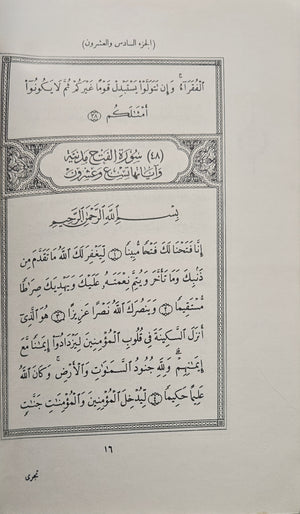 (الجزء السادس والعشرون)
الْفُقَرَآءُ وَإِن تَتَوَلَّوْا۟ يَسْتَبْدِلْ قَوْمًا غَيْرَكُمْ ثُمَّ لَا يَكُونُوٓا۟
أَمْثَـٰلَكُم ﴿٣٨﴾
(٤٨) سُورَةُ الفَتْحِ مَدَنِيَّة
وَآيَاتُهَا تِسْعٌ وَعِشْرُونَ
بِسْمِ اللَّهِ الرَّحْمَٰنِ الرَّحِيمِ
إِنَّا فَتَحْنَا لَكَ فَتْحًا مُّبِينًا ﴿١﴾ لِّيَغْفِرَ لَكَ اللَّهُ مَا تَقَدَّمَ مِن
ذَنۢبِكَ وَمَا تَأَخَّرَ وَيُتِمَّ نِعْمَتَهُۥ عَلَيْكَ وَيَهْدِيَكَ صِرَٰطًا
مُّسْتَقِيمًا ﴿٢﴾ وَيَنصُرَكَ اللَّهُ نَصْرًا عَزِيزًا ﴿٣﴾ هُوَ الَّذِىٓ
أَنزَلَ السَّكِينَةَ فِى قُلُوبِ الْمُؤْمِنِينَ لِيَزْدَادُوٓا۟ إِيمَـٰنًا مَّعَ
إِيمَـٰنِهِمْ ۗ وَلِلَّهِ جُنُودُ السَّمَـٰوَٰتِ وَالْأَرْضِ ۚ وَكَانَ اللَّهُ
عَلِيمًا حَكِيمًا ﴿٤﴾ لِّيُدْخِلَ الْمُؤْمِنِينَ وَالْمُؤْمِنَـٰتِ جَنَّـٰتٍ
١٦
تجرى